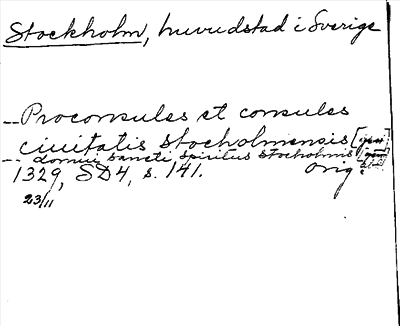 Stockholm, huvudstad i Sverige
-- Proconsules et consules
ciuitatis stocholmensis [gen
-- domui sancti spiritus stocholmis [gen
1329, SD4, s. 141. Orig
23/11